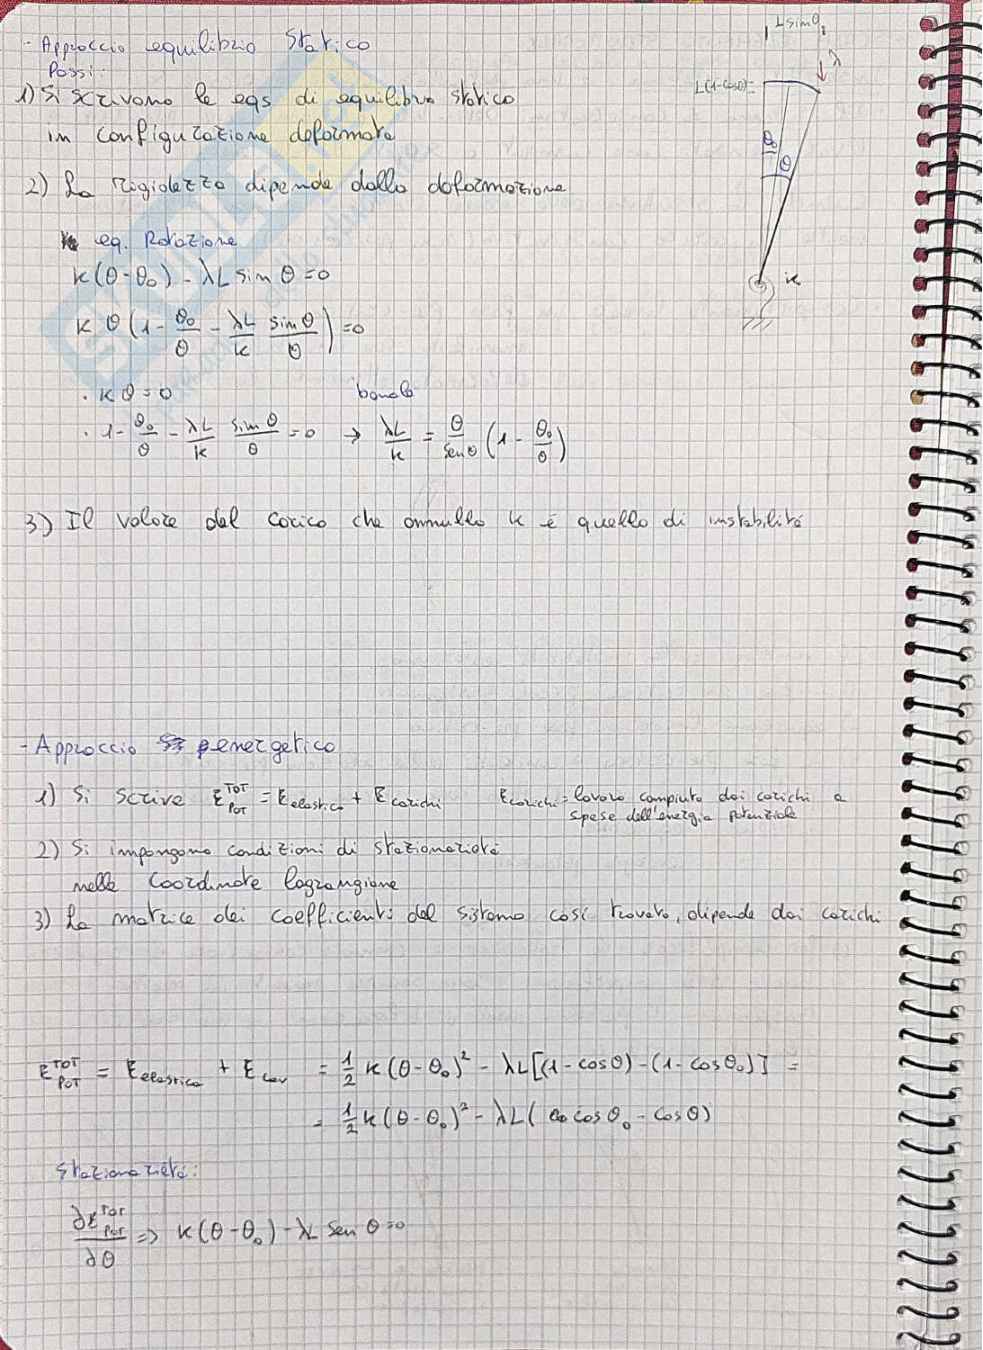 - Approccio equilibrio statico
Passi:
1) Si scrivono le eqs di equilibrio statico
in configurazione deformata
2) La rigidezza dipende dalla deformazione
eq. Rotazione
k(θ-θ₀) - λL sin θ = 0
k θ (1 - θ₀/θ - λL/k sinθ/θ) = 0
· kθ = 0 banale
· 1 - θ₀/θ - λL/k sinθ/θ = 0 → λL/k = θ/senθ (1 - θ₀/θ)
3) Il valore del carico che annulla k è quello di instabilità
L sinθ
λ
L(1-cosθ)
θ₀
θ
k
- Approccio energetico
1) Si scrive E^TOT_POT = E elastica + E carichi E carichi = lavoro compiuto dai carichi a
spese dell'energia potenziale
2) Si impongono condizioni di stazionarietà
nelle coordinate lagrangiane
3) La matrice dei coefficienti del sistema così trovato, dipende dai carichi
E^TOT_POT = E elastica + E car = 1/2 k(θ-θ₀)² - λL[(1-cosθ)-(1-cosθ₀)] =
= 1/2 k(θ-θ₀)² - λL( cosθ₀ - cosθ)
Stazionarietà:
∂E^TOT_POT/∂θ => k(θ-θ₀) - λL sen θ = 0